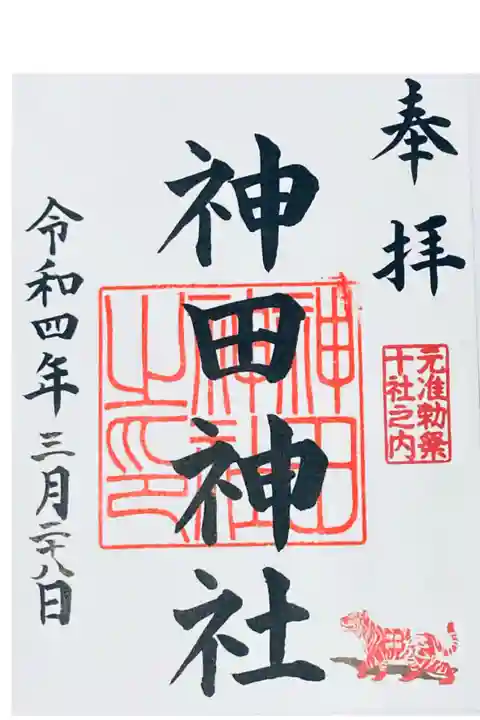 奉拝
元准勅祭
十社之内
神田神社
神田
神社
之印
令和四年三月二十八日